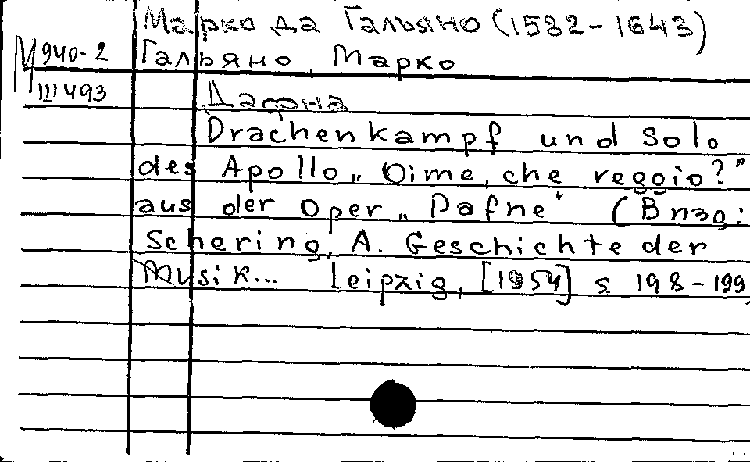 Марко да Гальяно (1582-1643)
М 940-2
Гальяно, Марко
III 493
Дафна
Drachenkampf und Solo
des Apollo „Oime, che veggio?"
aus der Oper „Dafne" (В изд:
Schering, A. Geschichte der
Musik... Leipzig, [1954] s. 198-199